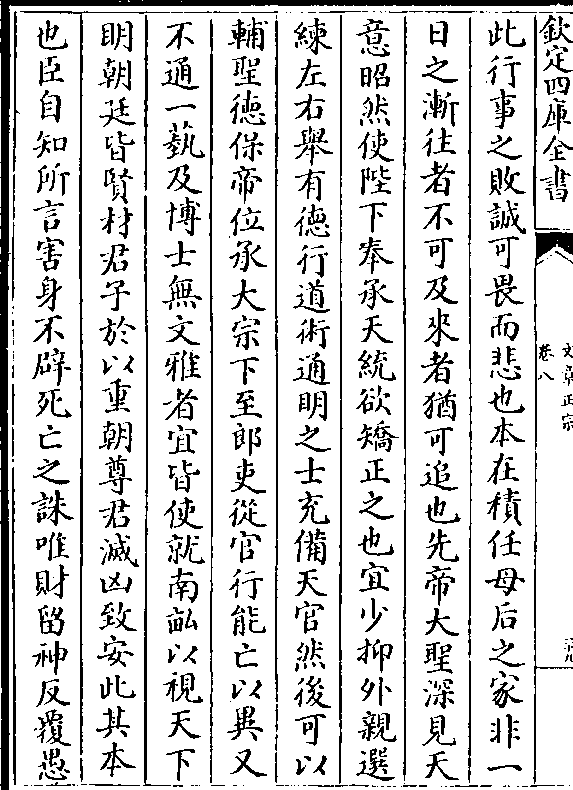 欽定四庫全書
文章正宗
卷八
此行事之敗誠可畏而悲也本在積任母后之家非一
日之漸往者不可及來者猶可追也先帝大聖深見天
意昭然使陛下奉承天統欲矯正之也宜少抑外親選
練左右舉有徳行道術通明之士充備天官然後可以
輔聖徳保帝位承大宗下至郎吏從官行能亡以異又
不通一藝及博士無文雅者宜皆使就南畝以視天下
明朝廷皆賢材君子於以重朝尊君滅凶致安此其本
也臣自知所言害身不辟死亡之誅唯財留神反覆愚